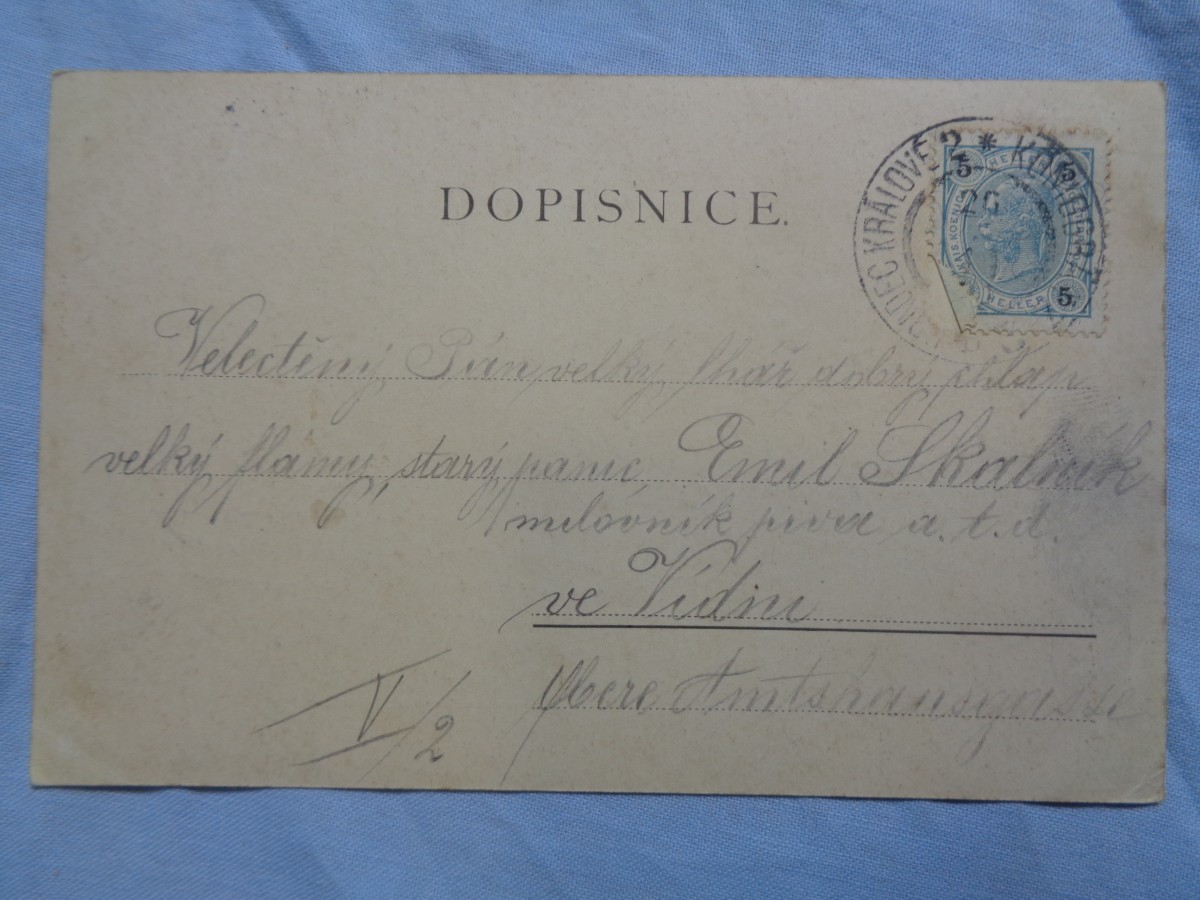 DOPISNICE.
HRADEC KRÁLOVÉ 2 * KÖNIGGR
26
5 HELLER 5
KAIS. KOENIG
HELLER 5
Velectěný Pán, velký lhář, dobrý chlap
velký flámy, starý panic Emil Skalník
milovník piva a. t. d.
ve Vídni
Obere Amtshausgasse
V/2